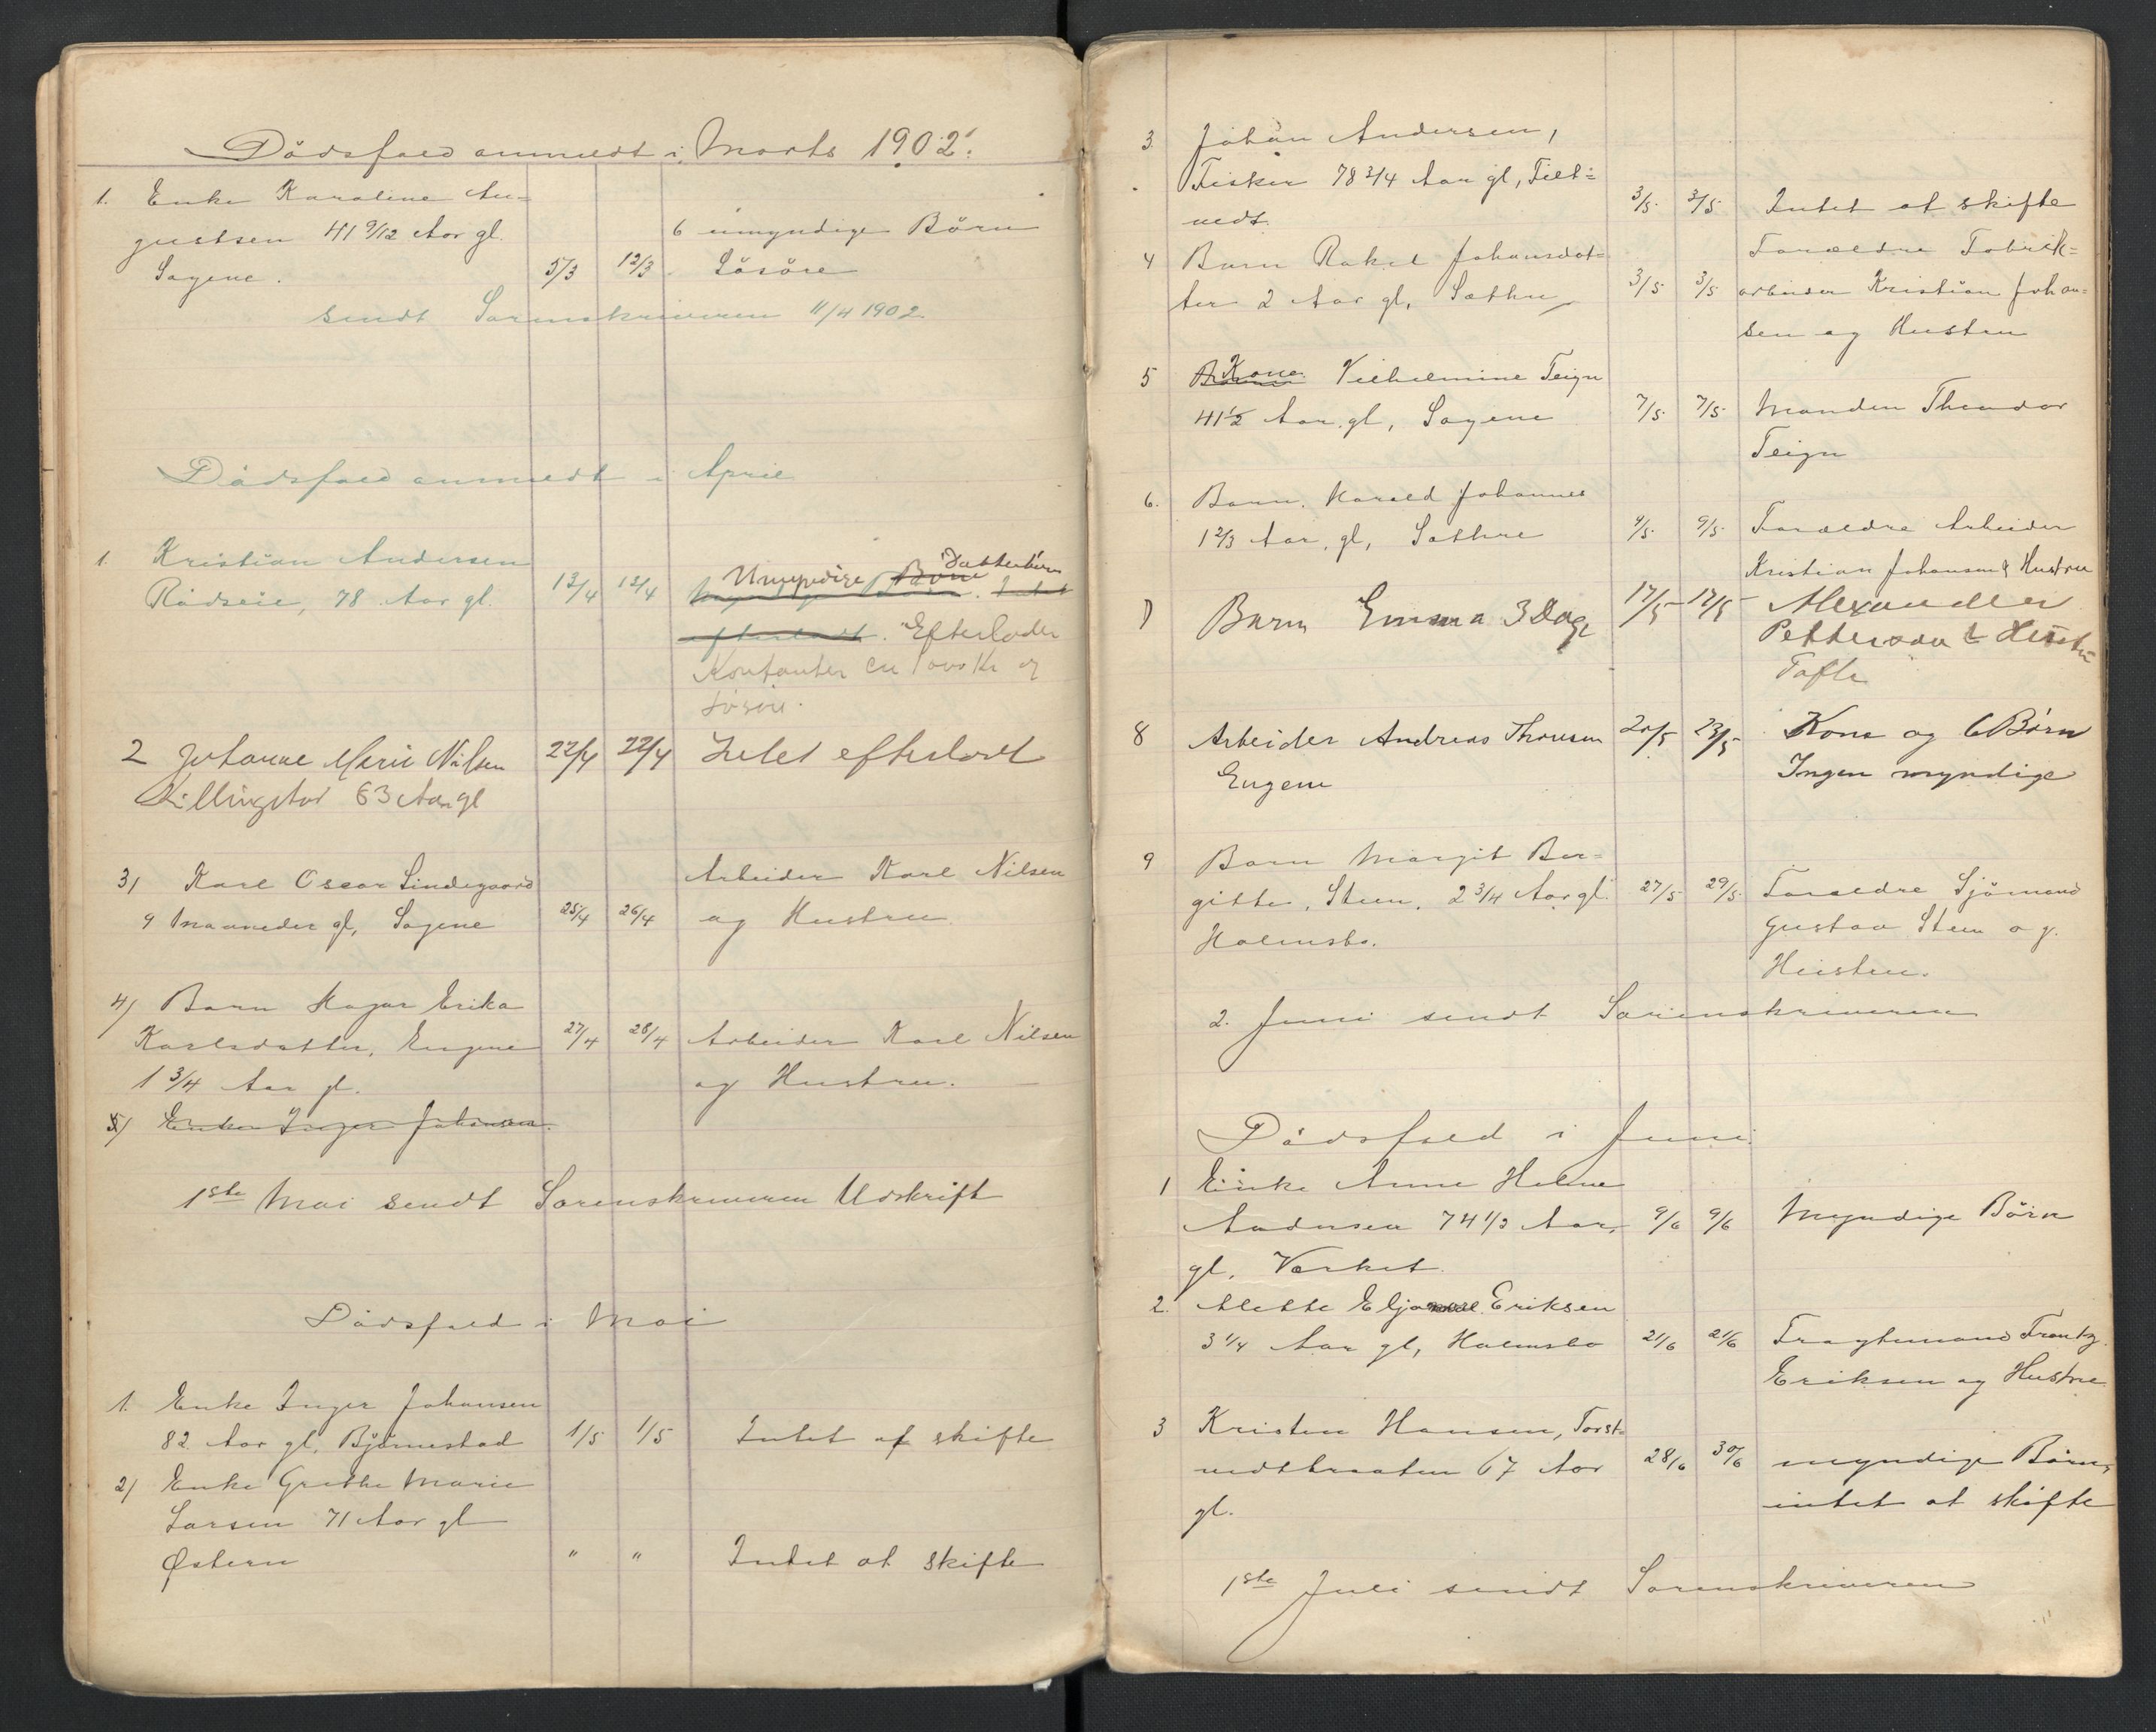 Dödsfald anmeldt i Marts 1902.
1. Enke Karoline Au=
gustsen 41 9/12 Aar gl. 6 umyndige Börn
Sagene. 5/3 12/3 Lösöre
sendt Sorenskriveren 11/4 1902.
Dödsfald anmeldt i April
1. Kristian Andersen
Rödseie, 78 Aar gl. 13/4 13/4 Umyndige Börn Datterbörn
Myndige Börn. Intet
efterladt. Efterlader
Kontanter ca 1000 Kr og
Lösöre.
2 Johanne Marie Nilsen 22/4 22/4 Intet efterladt
Killingstad 63 Aar gl
3) Karl Oscar Lindegaard Arbeider Karl Nilsen
9 Maaneder gl, Sagene 25/4 26/4 og Hustru
4) Barn Hagar Erika
Karlsdatter, Engene 27/4 28/4 Arbeider Karl Nilsen
1 3/4 Aar gl. og Hustru.
5) Enke Inger Johansen.
1ste Mai sendt Sorenskriveren Udskrift
Dödsfald i Mai
1. Enke Inger Johansen
82 Aar gl, Björnestad 1/5 1/5 Intet at skifte
2) Enke Grethe Marie
Larsen 71 Aar gl
Østern " " Intet at skifte
3. Johan Andersen,
Fisker 78 3/4 Aar gl, Filt=
vedt. 3/5 3/5 Intet at skifte
4 Barn Rakel Johansdat= Forældre Fabrik=
ter 2 Aar gl, Sæthre 3/5 3/5 arbeider Kristian Johan=
sen og Hustru
5 Kone Vilhelmine Teign
41 1/2 Aar gl, Sagene 7/5 7/5 Manden Theodor
Teign
6. Barn Harald Johannes
1 2/3 Aar, gl, Sæthre 9/5 9/5 Forældre Arbeider
Kristian Johansen & Hustru
7 Barn Emma 3 Dage 17/5 17/5 Alexander
Pettersen & Hustru
Tofte
8 Arbeider Andreas Thorsen 20/5 23/5 Kone og 6 Börn
Engene Ingen myndige
9 Barn Margit Bor=
gitte, Steen, 2 3/4 Aar gl. 27/5 29/5 Forældre Sjömand
Holmsbo. Gustav Steen og
Hustru.
2. Juni sendt Sorenskriveren
Dödsfald i Juni
1 Enke Anne Helene
Andersen 74 1/2 Aar, 9/6 9/6 Myndige Börn
gl. Verket.
2. Alette Eriksen
3 1/4 Aar gl, Holmsbo 21/6 21/6 Fragtemand Frantz
Eriksen og Hustru
3 Kristen Hansen, Torst=
vedtbraaten 67 Aar 28/6 30/6 myndige Börn,
gl. intet at skifte
1ste Juli sendt Sorenskriveren